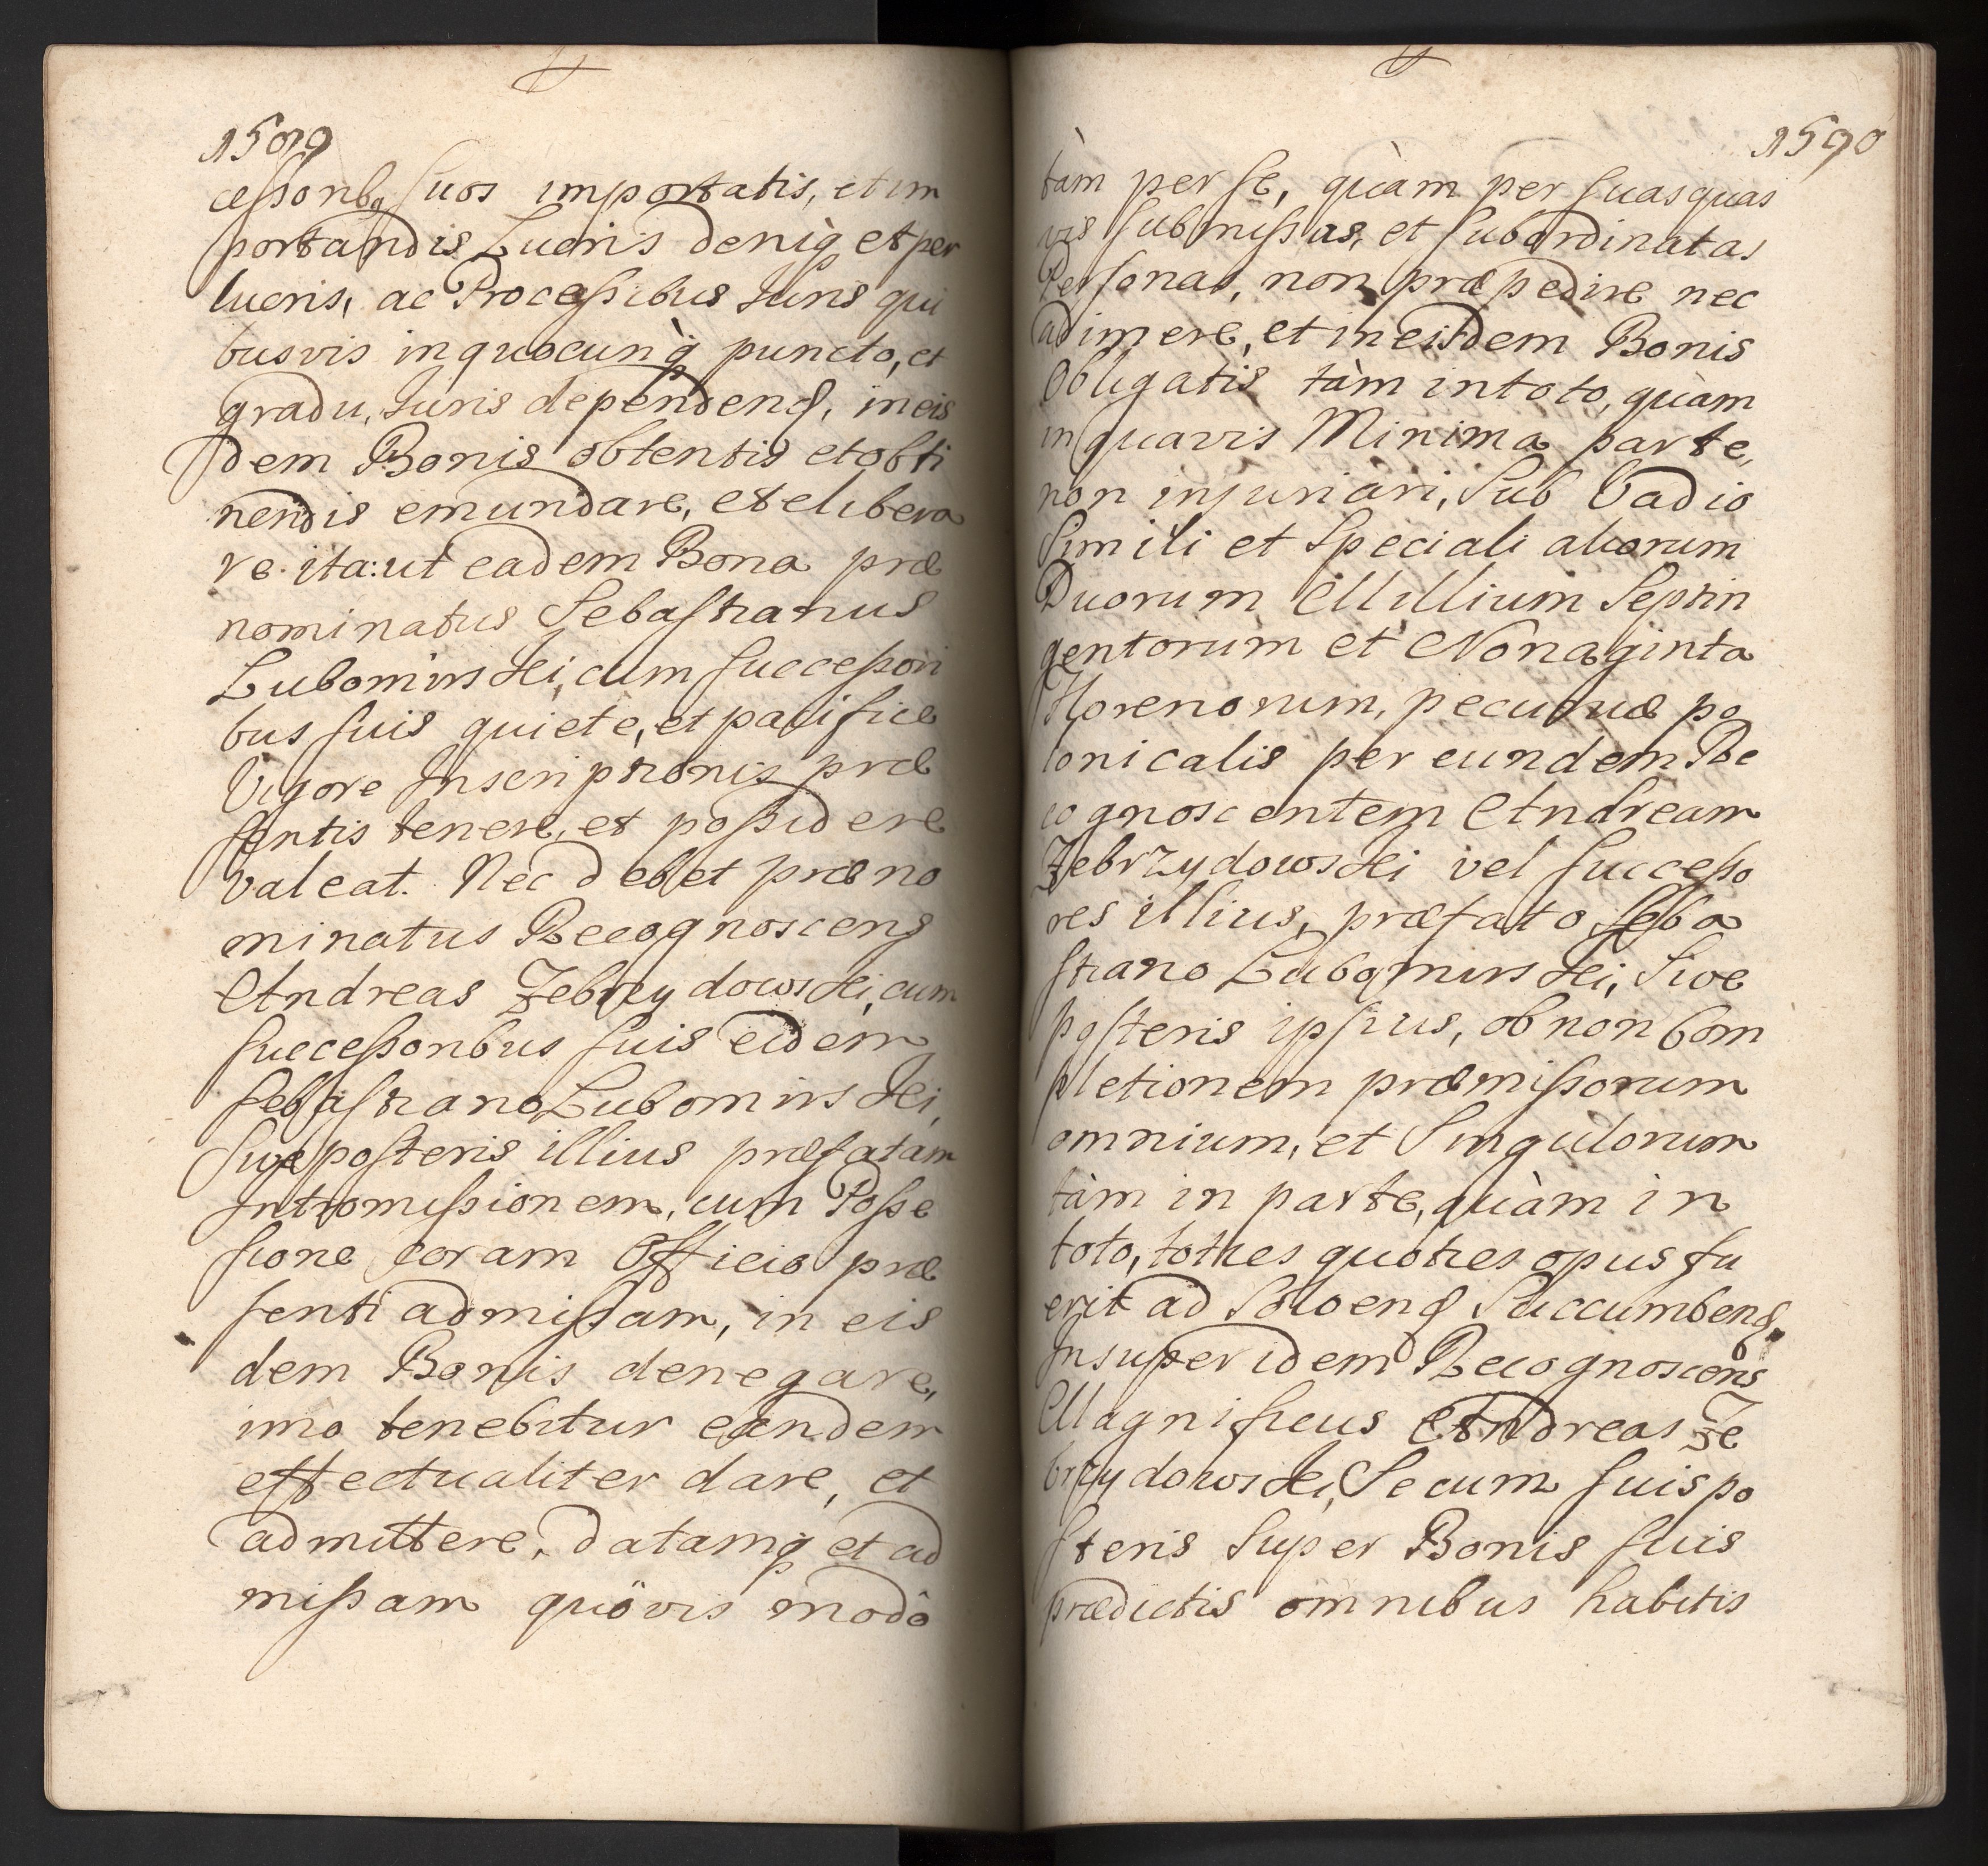 1589
cessorib9 suos importatis, et im
portandis Lucris deniq et per
lucris, ac Processibus Iuris qui
busvis in quocunq puncto, et
gradu, Iuris dependens, in eis
dem Bonis obtentis et obti
nendis emundare, et elibera
re. ita: ut eadem Bona præ
nominatus Sebastianus
Lubomirski, cum successori
bus suis quiete, et pacifice
Vigore Inscriptionis præ
sentis tenere, et possidere
valeat. Nec debet præno
minatus Recognoscens
Andreas Zebrzydowski, cum
successoribus suis eidem
Sebastiano Lubomirski,
sive posteris illius præfatam
Intromissionem, cum Posse
sione coram Officio præ
senti admissam, in eis
dem Bonis denegare,
imo tenebitur eandem
effectualiter dare, et
admittere, datamq et ad
missam quövis modô
1590
tàm per se, quàm per suas quas
vis submissas, et subordinatas
Personas, non præpedire nec
adimere, et in eisdem Bonis
Obligatis tàm in toto, quàm
in quavis Minima parte,
non injuriari, Sub Vadio
Simili et Speciali aliorum
Duorum Millium Septin
gentorum et Nonaginta
Florenorum, pecuniæ po
lonicalis per eundem Re
cognoscentem Andream
Zebrzydowski vel successo
res illius, præfato Seba
stiano Lubomirski, Sive
posteris ipsius, ob non Com
pletionem præmissorum
omnium, et Singulorum
tàm in parte, quàm in
toto, toties quoties opus fu
erit ad Solvens Succumbens,
Insuper idem Recognoscens
Magnificus Andreas Ze
brzydowski, Se cum suis po
steris Super Bonis suis
prædictis omnibus habitis